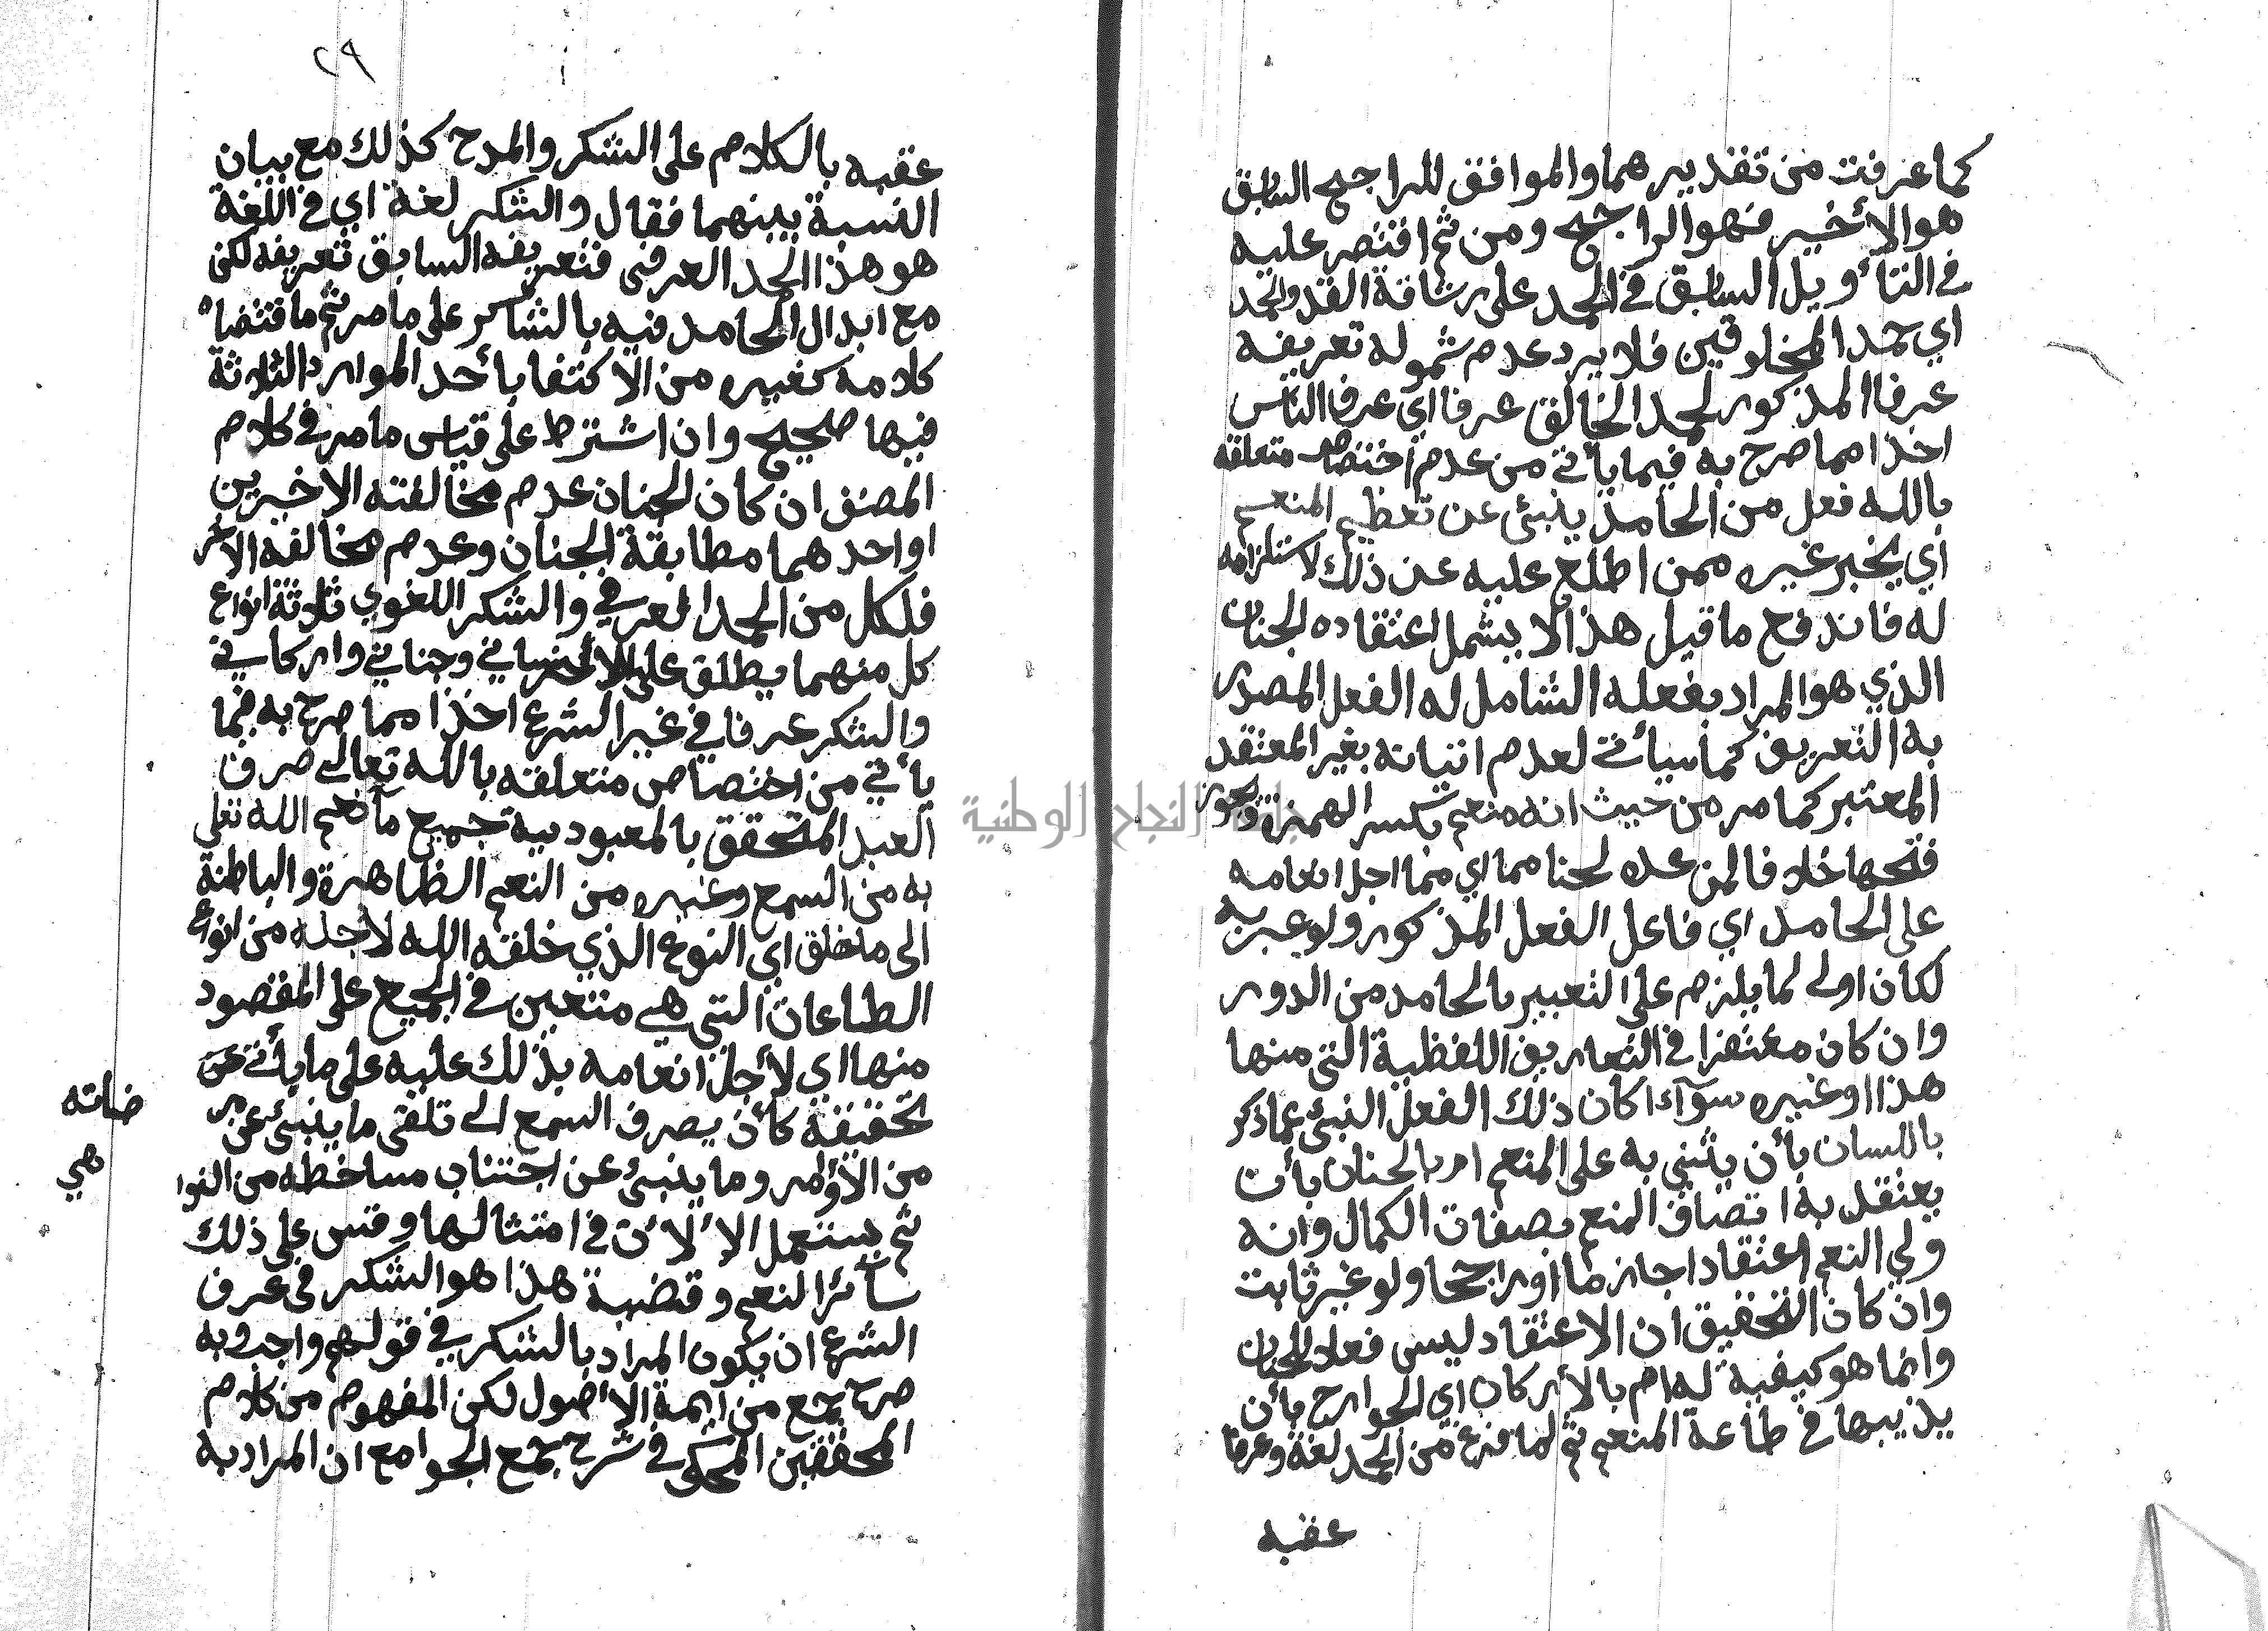 كما عرفت من تقديرهما والموافق للراجح السابق
هو الأخير فهو الراجح ومن ثم اقتصر عليه
في التأويل السابق في الحمد على رشاقة القد والحمد
اي حمد المخلوقين فلا يرد عدم شموله تعريفه
عرفا المذكور لحمد الخالق عرفا اي عرف الناس
اخذا مما صرح به فيما يأتي من عدم اختصاص متعلقه
بالله فعل من الحامد ينبئ عن تعظيم المنعم
اي يخبر غيره ممن اطلع عليه عن ذلك لاستلزامه
له فاندفع ما قيل هذا لا يشمل اعتقاده الجنان
الذي هو المراد بفعله الشامل له الفعل المصدر
به التعريف كما سيأتي لعدم انبيائه بغير المعتقد
المعتبر كما مر من حيث انه منعم بكسر الهمزة ويجوز
فتحها خلافا لمن عده لحنا مما اي مما اجل انعامه
على الحامد اي فاعل الفعل المذكور ولو عبر به
لكان اولى لما يلزم على التعبير بالحامد من الدور
وان كان مغتفرا في التعاريف اللفظية التي منها
هذا او غيره سوآءا كان ذلك الفعل المنبئ عما ذكر
باللسان بأن يثني به على المنعم ام بالجنان بأن
يعتقد به اتصاف المنعم بصفات الكمال وانه
ولي النعم اعتقادا جازما او راجحا ولو غير ثابت
وان كان التحقيق ان الاعتقاد ليس فعلا للجنان
وانما هو كيفية له ام بالأركان اي الجوارح بأن
يذيبها في طاعة المنعم ثم لما فرغ من الحمد لغة وعرفا
عقبه
٢٩
عقبه بالكلام على الشكر والمدح كذلك مع بيان
النسبة بينهما فقال والشكر لغة اي في اللغة
هو هذا الحمد العرفي فتعريفه السابق تعريفه لكن
مع ابدال الحامد فيه بالشاكر على ما مر ثم ما اقتضاه
كلامه كغيره من الاكتفا بأحد الموارد الثلاثة
فيها صحيح وان اشترط على قياس ما مر في كلام
المصنف ان كان الجنان عدم مخالفته الاخيرين
او احدهما مطابقة الجنان وعدم مخالفة الاخر
فلكل من الحمد العرفي والشكر اللغوي ثلاثة انواع
كل منهما يطلق على الاخر لساني وجناني واركاني
والشكر عرفا في غير الشرع اخذا مما صرح به فيما
يأتي من اختصاص متعلقه بالله تعالى صرف
العبد المتحقق بالمعبودية جميع ما أنعم الله تعالى
به من السمع وغيره من النعم الظاهرة والباطنة
الى ما خلق اي النوع الذي خلقه الله لأجله من انواع
الطاعات التي هي متعين في الجميع على المقصود
منها اي لأجل انعامه بذلك عليه على ما يأتي عن
تحقيقه كأن يصرف السمع الى تلقي ما ينبئ عن مر
ضاته
من الأوامر وما ينبئ عن اجتناب مساخطه من النوا
هي
ثم يستعمل الألات في امتثالها وقس على ذلك
سائر النعم وقضية هذا هو الشكر في عرف
الشرع ان يكون المراد بالشكر في قولهم واجب وبه
صرح جمع من ايمة الأصول لكن المفهوم من كلام
المحققين المحكي في شرح جمع الجوامع ان المراد به
جامعة النجاح الوطنية